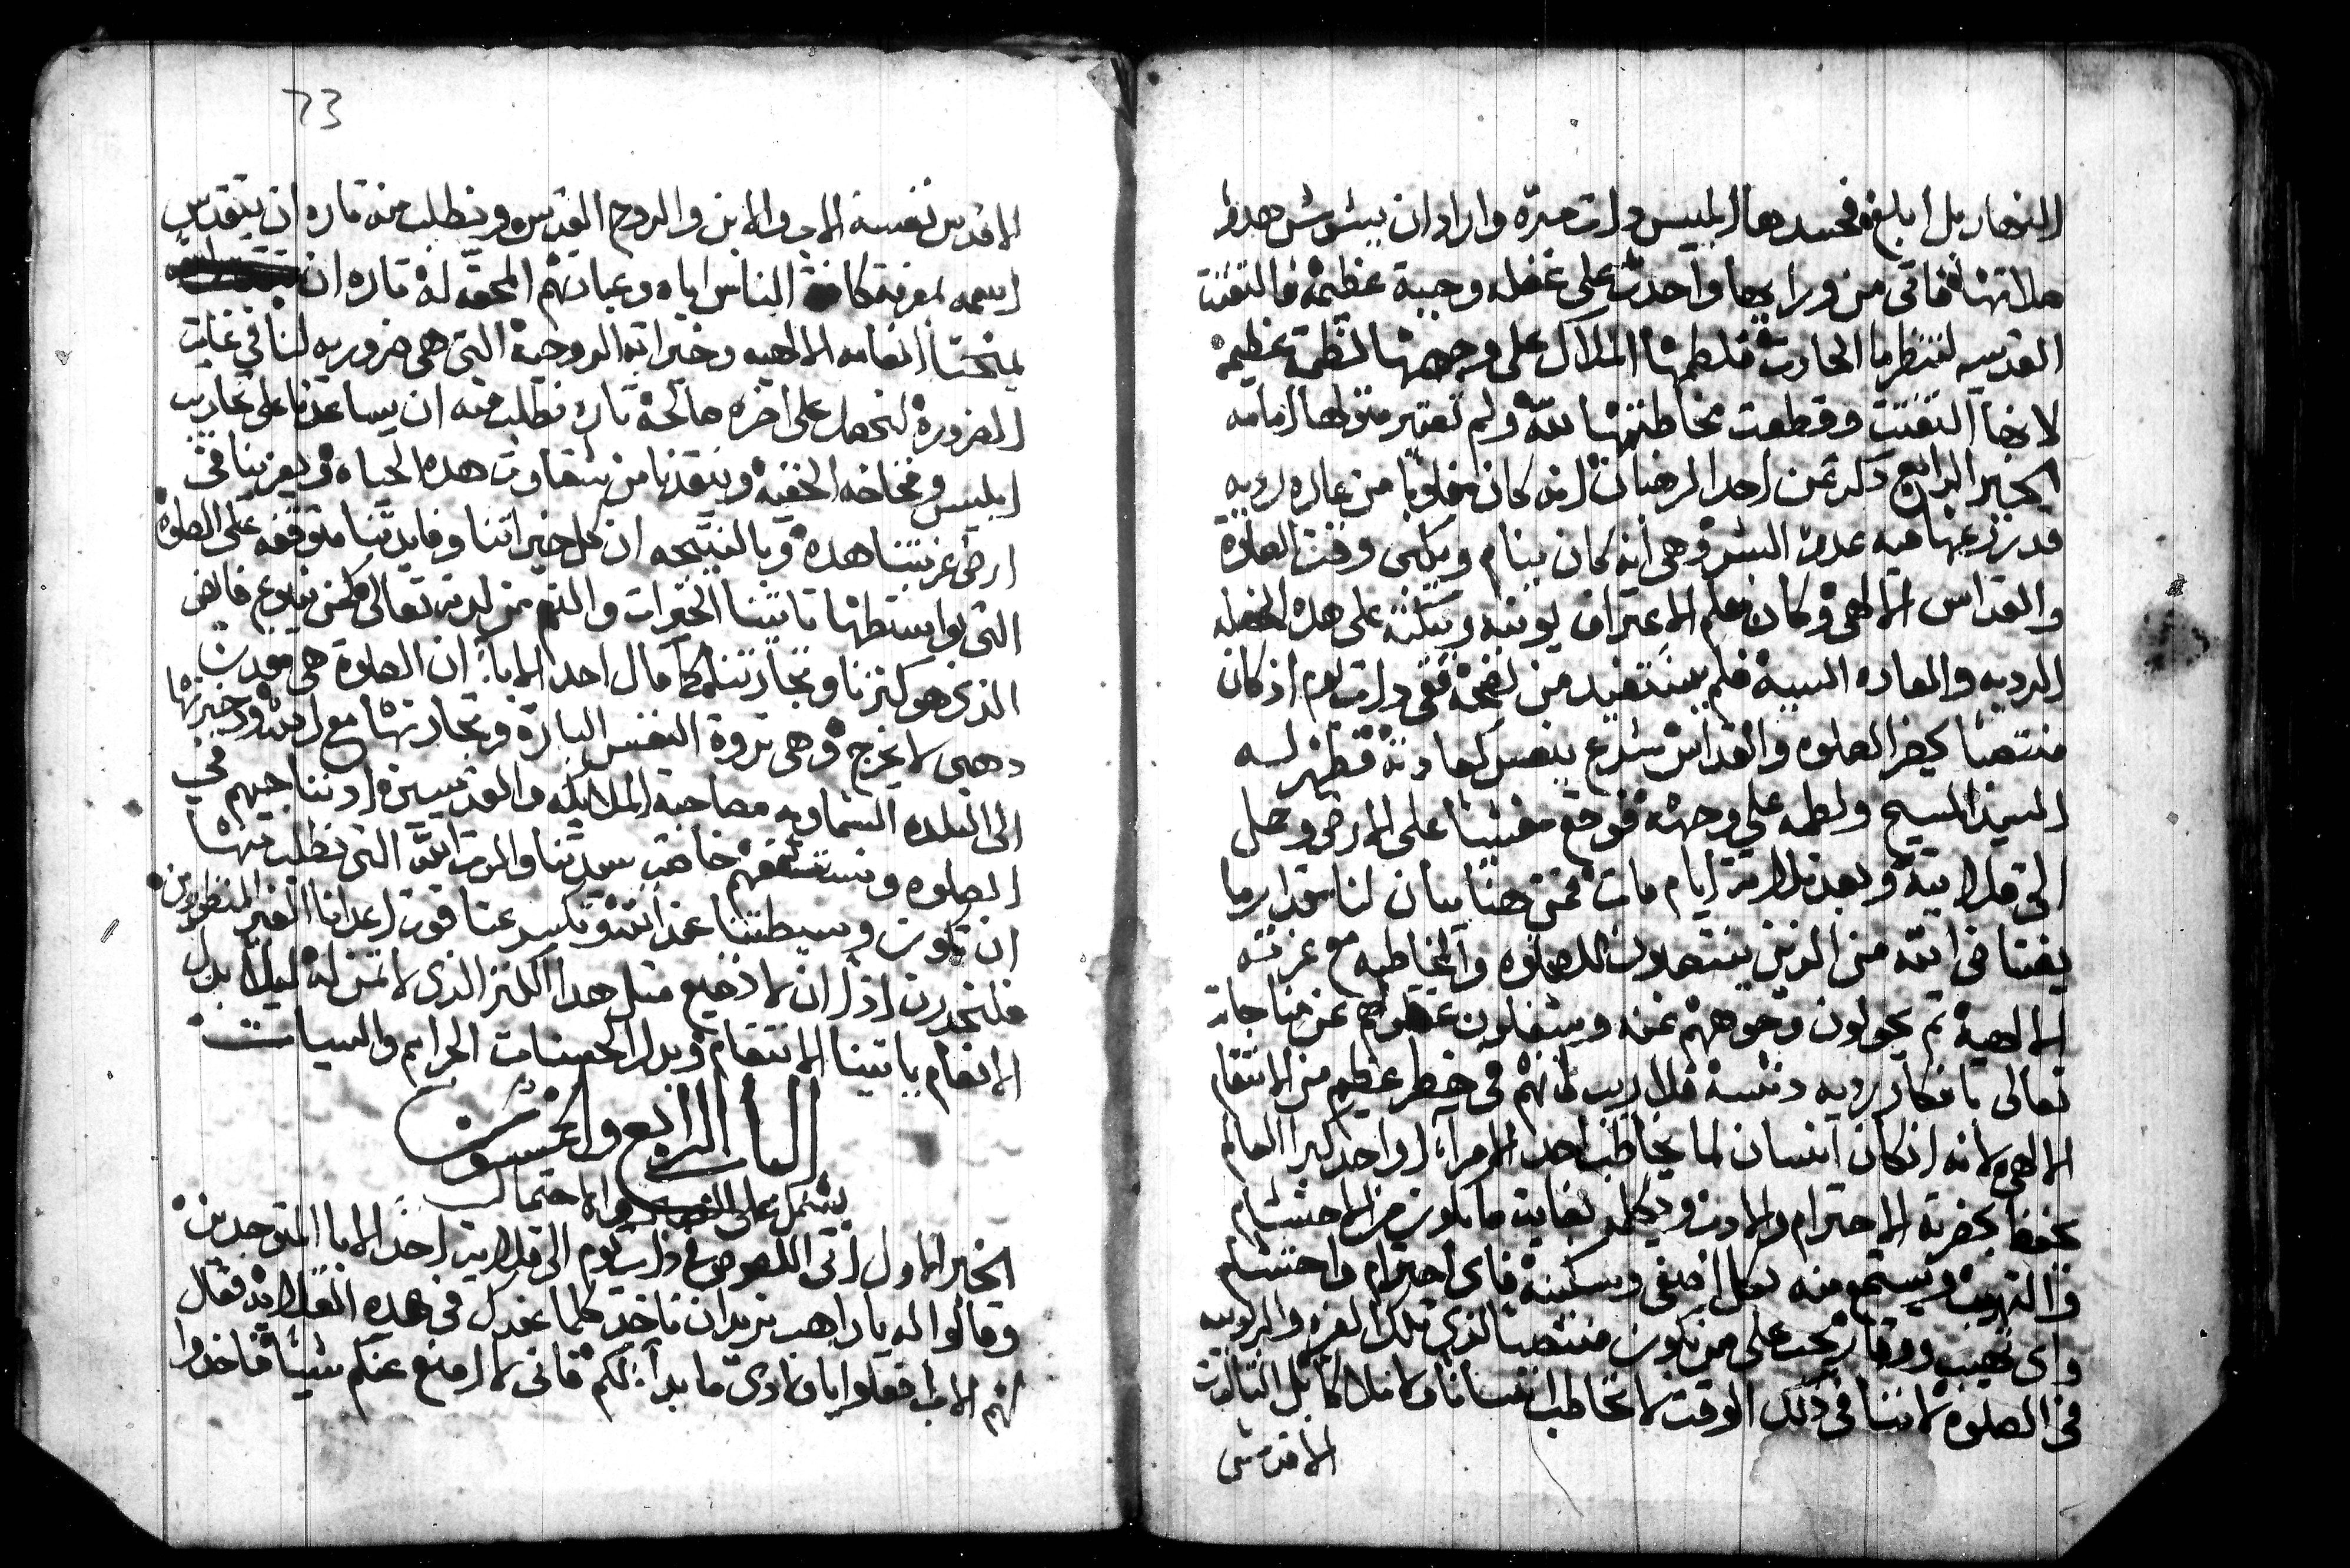 النهار بل ابلغ فحسدها ابليس دات مره واراد ان يشوش هدو
صلاتها فاتى من ورايها واحدث على غفله وجبة عظيمة فالتفتت
القديسه لتنظر ما الحادث فلطمها الملاك على وجهها لطمة عظيمة
لانها التفتت وقطعت مخاطبتها لله ولم تعتبر متولها امامه
الخبر الرابع دكر عن احد الرهبان انه كان مغلوبا من عاده رديه
قد رزعها فيه عدو البشر وهي انه كان ينام ويتكي وقت الصلاة
والقداس الالهي وكان معلم الاعتراف يوبخه ويبكته على هده الخصله
الرديه والعاده السيه فلم يستفيد من نصحه ففي دات يوم اذ كان
منتصبا يحضر الصلوه والقداس شرع ينعس كعادته فظهر له
السيد المسيح ولطمه على وجهه فوقع مغشيا على الارض وحمل
الى قلايته وبعد ثلاثة ايام مات فمن هنا يبان لنا مقدار ما
يغتاض الله من الذين ينتصبون للصلوه والمخاطبه مع عزته
الالهية ثم يحولون وجوههم عنه ويشغلون عقولهم عن مناجات
تعالى بافكار رديه دنسة فلا ريب انهم في خطر عظيم من الانتقام
الالهي لانه ان كان انسان لما يخاطب احد الامرآء او احد كبرا العالم
يخضع بحضرته الاحترام والادب ويكلمه بغاية ما يكون من الاحتشام
والتهيب ويستمع منه بكل اصغى وسكينة فاي احترام واحتشام
واي تهيب ووقار يجب على من يكون منتصبا لدى تلك العزه والربوبيه
في الصلوه لاننا في ذلك الوقت لا نخاطب انسانا ولا ملاكا بل الثالوث
الاقدس
73
الاقدس نفسه الاب والابن والروح القدس ونطلب منه تاره ان يتقدس
اسمه لمعرفة كافة الناس اياه وعبادتهم المحقه له تاره ان
يمنحنا انعامه الالهيه وخيراته الروحية التي هي ضروريه لنا في غايت
الضرورة لنحصل على اخره صالحة تاره نطلب منه ان يساعدنا على تجاريب
ابليس وفخاخه الخفيه وينقدنا من شقاوت هده الحياه ويعزينا في
ارض غربتنا هده وبالنتيجه ان كل خيراتنا وفايدتنا متوقفه على الصلوة
التي بواسطتها تاتينا الخيرات والنعم من لدنه تعالى فاض
الذي هو كنزنا وتجارتنا كما قال احد الابآء ان الصلوة هي معدن
دهبي لا يخرج وهي ثروة النفس البارة وتجارتها مع
الى البلده السماويه مصاحبة الملايكه والقديسين اد نناجيهم في
الصلوه ونستشفعهم خاصة سيدتنا والدت الله التي نطلب منها
ان تكون وسيطتنا عند الله وتكسر عنا قوت اعدانا الغير المنظورين
فلنحدرن اذا ان لا نضيع مثل هدا الكنز الذي لا تمن له ليلا بدل
الانعام ياتينا الانتقام وبدل الحسنات الجرايم والسيات
الباب الرابع والخمسون
يشتمل على الصبر والاحتمال
الخبر الاول اتى اللصوص في ذات يوم الى قلاية احد الابا المتوحدين
وقالوا له يا راهب نريد ان ناخد كلما عندك في هده القلايه فقال
لهم الاب افعلوا يا اولادي ما بدا لكم فاني لا امنع عنكم شيئا فاخدوا